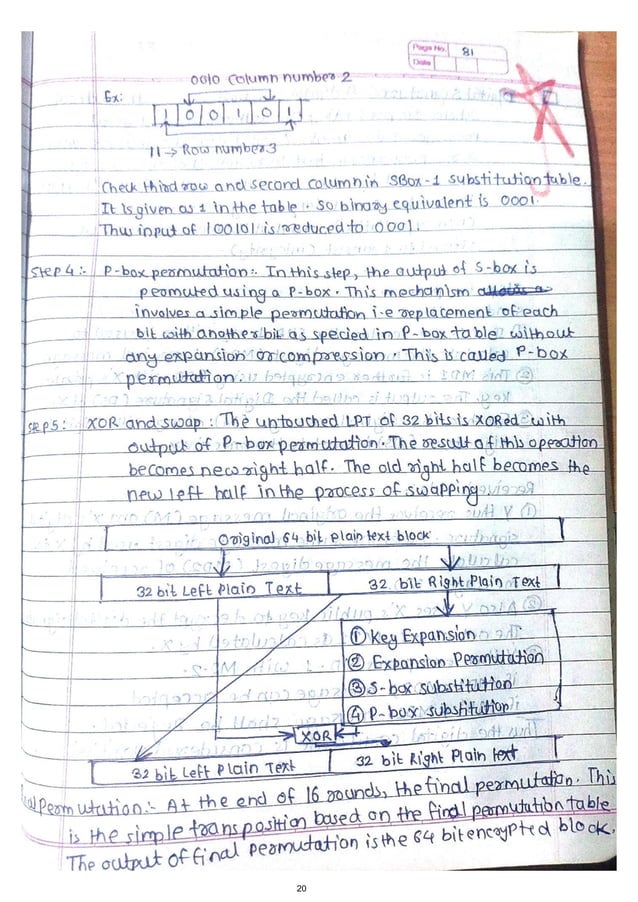 Page No. 81
Date
0010 column number 2
Ex:
1 0 0 1 0 1
11 → Row number 3
Check third row and second column in SBox-1 substitution table.
It is given as 1 in the table. So binary equivalent is 0001.
Thus input of 100101 is reduced to 0001.
Step 4:- P-box permutation:- In this step, the output of S-box is
permuted using a P-box. This mechanism
involves a simple permutation i.e replacement of each
bit with another bit as specied in P-box table without
any expansion or compression. This is called P-box
permutation.
Step 5: XOR and swap: The untouched LPT of 32 bits is XORed with
output of P-box permutation. The result of this operation
becomes new right half. The old right half becomes the
new left half in the process of swapping
Original 64 bit plain text block
32 bit Left Plain Text 32 bit Right Plain Text
① Key Expansion
② Expansion Permutation
③ S-box substitution
④ P-box substitution
XOR
32 bit Left Plain Text 32 bit Right Plain text
Permutation:- At the end of 16 rounds, the final permutation. This
is the simple transposition based on the final permutation table
The output of final permutation is the 64 bit encrypted block.
20